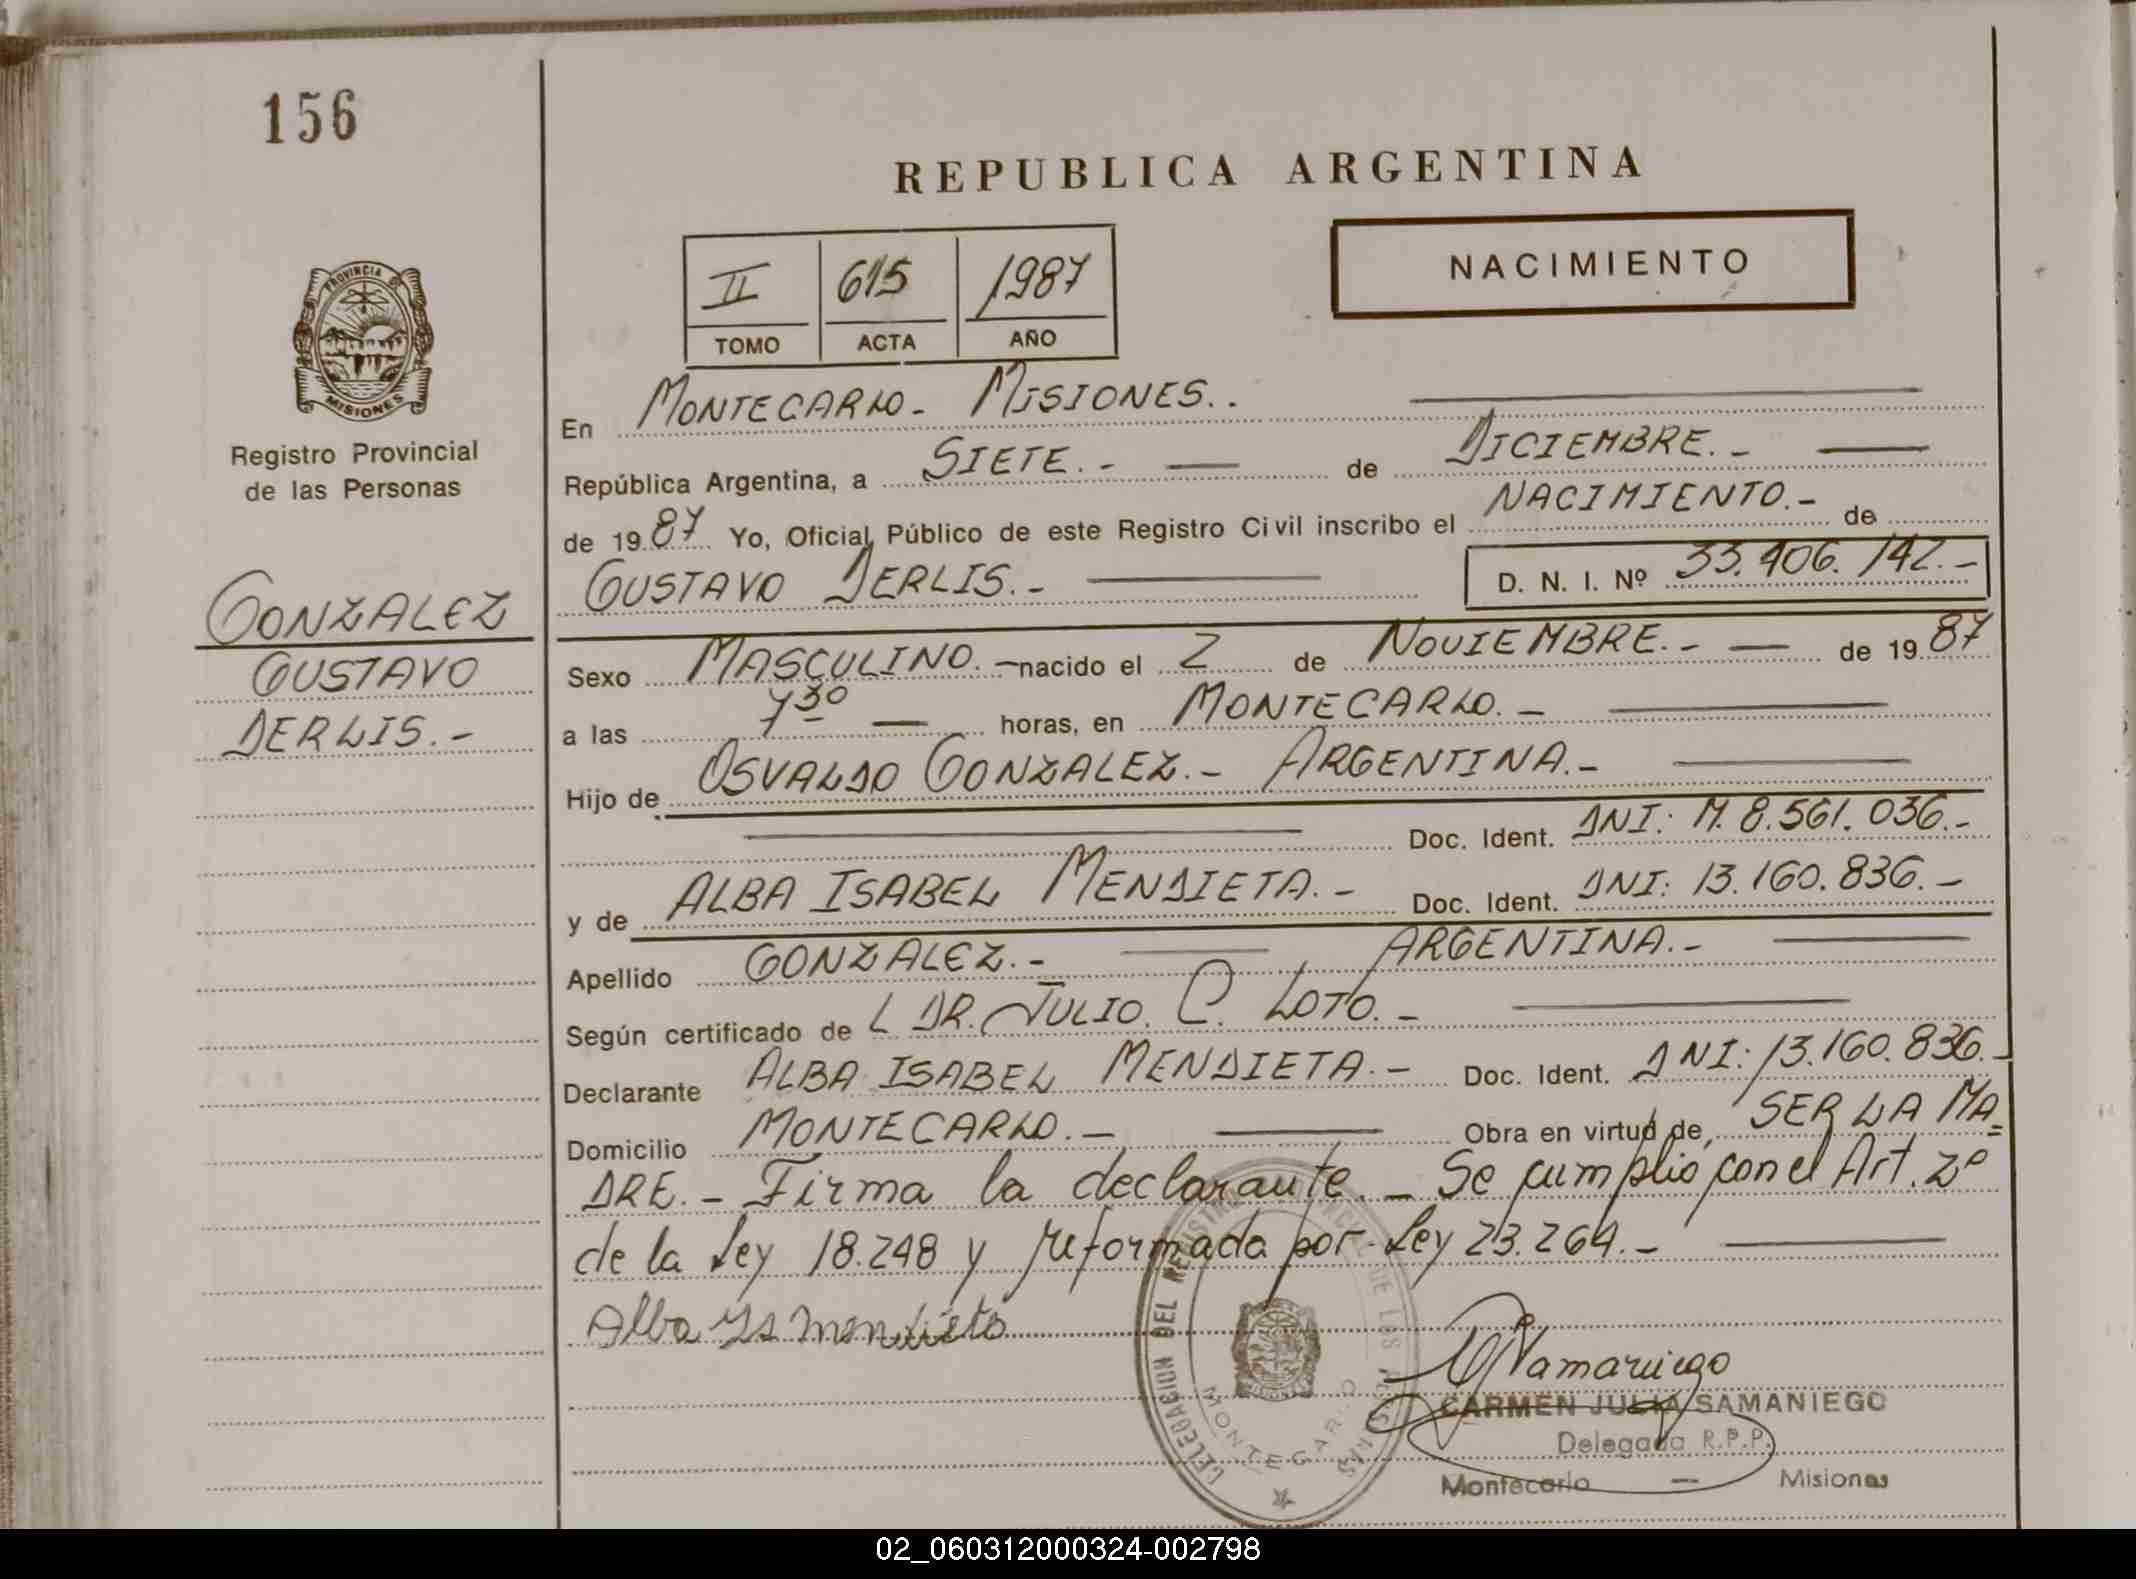 156
REPUBLICA ARGENTINA
II 615 1987
TOMO ACTA AÑO
NACIMIENTO
PROVINCIA DE
MISIONES
Registro Provincial
de las Personas
GONZALEZ
GUSTAVO
DERLIS.-
En MONTECARLO- MISIONES..
República Argentina, a SIETE.- de DICIEMBRE.-
de 1987 Yo, Oficial Público de este Registro Civil inscribo el NACIMIENTO.- de
GUSTAVO DERLIS.- D. N. I. Nº 33.406.142.-
Sexo MASCULINO.- nacido el 2 de NOVIEMBRE.- de 1987
a las 7 30 horas, en MONTECARLO.-
Hijo de OSVALDO GONZALEZ.- ARGENTINA.-
Doc. Ident. DNI: M. 8.561.036.-
y de ALBA ISABEL MENDIETA.- Doc. Ident. DNI: 13.160.836.-
Apellido GONZALEZ.- ARGENTINA.-
Según certificado de L DR. JULIO. C. LOTO.-
Declarante ALBA ISABEL MENDIETA.- Doc. Ident. DNI: 13.160.836.-
Domicilio MONTECARLO.- Obra en virtud de, SER LA MA=
DRE.- Firma la declarante.- Se cumplio con el Art. 2º
de la Ley 18.248 y reformada por Ley 23.264.-
Alba Is Mendieta
DELEGACION DEL REGISTRO PROVINCIAL DE LAS PERSONAS
MONTECARLO
CJSamaniego
CARMEN JULIA SAMANIEGO
Delegada R.P.P.
Montecarlo — Misiones
02_060312000324-002798